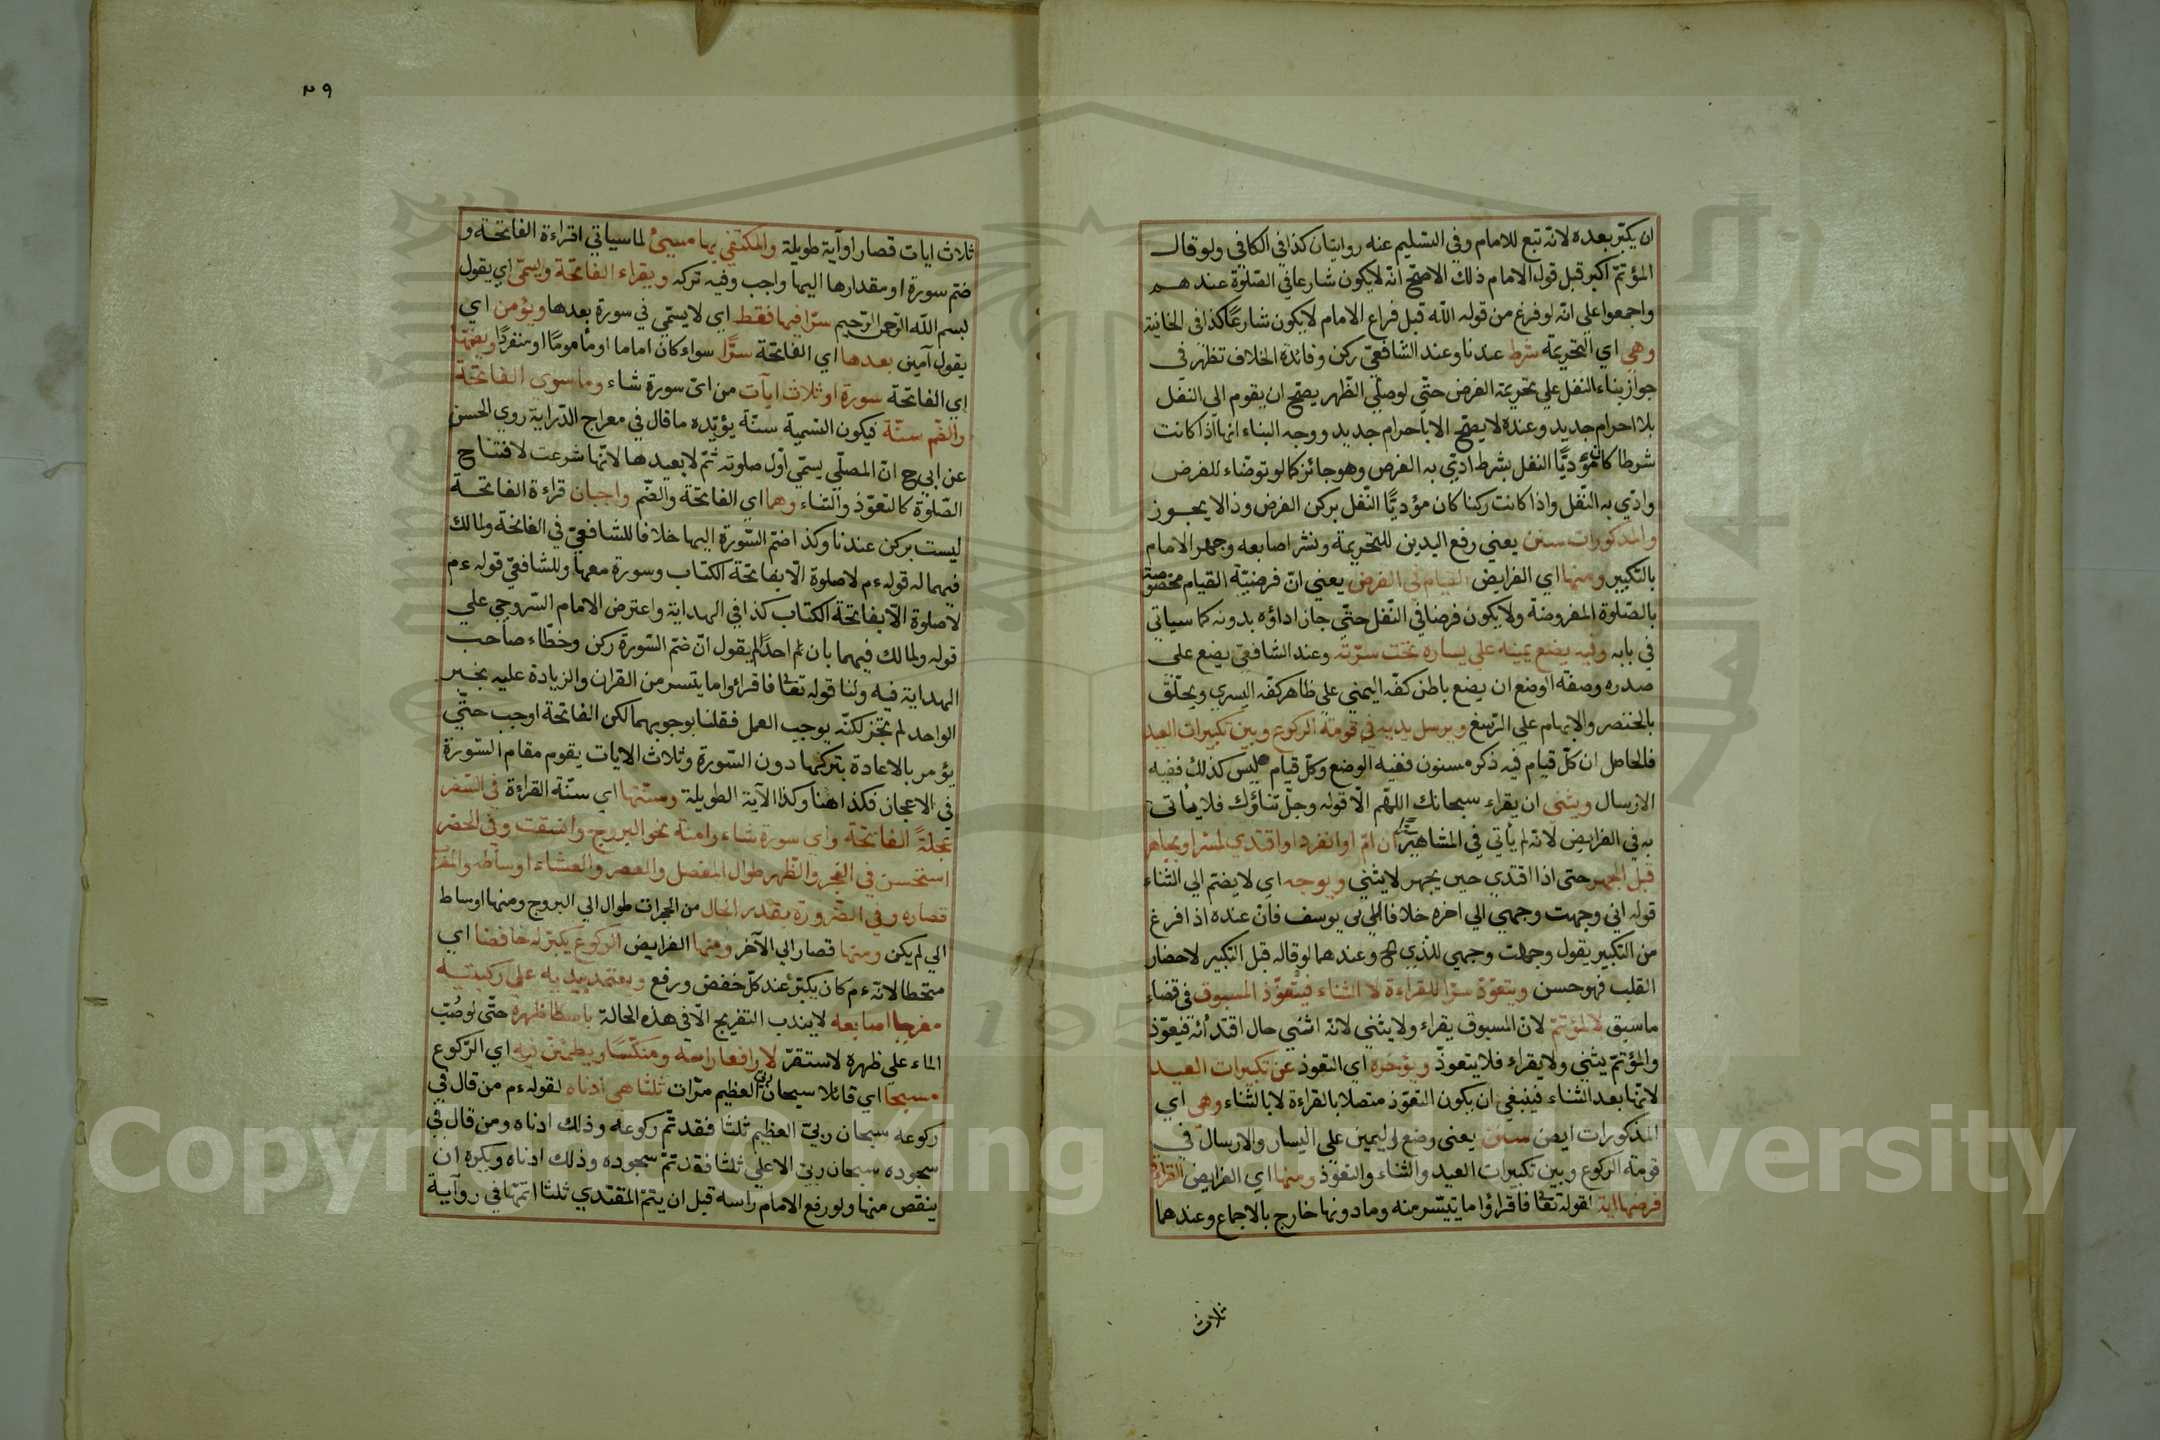 ان يكبّر بعده لانّه تبع للامام وفي التسليم عنه روايتان كذا في الكافي ولو قال
المؤتمّ اكبر قبل قول الامام ذلك الاصحّ انّه لا يكون شارعا في الصّلوة عندهم
واجمعوا على انّه لو فرغ من قوله اللّه قبل فراغ الامام لا يكون شارعًا كذا في الخانية
وهي اي التحريمة شرط عندنا وعند الشّافعيّ ركن وفائدة الخلاف تظهر في
جواز بناء النفل علي تحريمة الفرض حتّي لو صلّي الظّهر يصحّ ان يقوم الي النفل
بلا احرام جديد وعنده لا يصحّ الا باحرام جديد ووجه البناء انها اذا كانت
شرطا كان مؤدّيًا النفل بشرط ادّي به الفرض وهو جائز كما لو توضّاء للفرض
وادّي به النّفل واذا كانت ركنا كان مؤدّيًا النّفل بركن الفرض وذا لا يجوز
والمذكورات سنن يعني رفع اليدين للتحريمة ونشر اصابعه وجهر الامام
بالتكبير ومنها اي الفرايض القيام في الفرض يعني انّ فرضيّة القيام مخصوصة
بالصّلوة المفروضة ولا يكون فرضا في النّفل حتّي جاز اداؤه بدونه كما سياتي
في بابه وفيه يضع يمينه علي يساره تحت سرّته وعند الشافعيّ يضع علي
صدره وصفة الوضع ان يضع باطن كفّه اليمني علي ظاهر كفّه اليسري ويحلّق
بالخنصر والابهام علي الرّسغ ويرسل يديه في قومة الركوع وبين تكبيرات العيد
فالحاصل ان كلّ قيام فيه ذكر مسنون ففيه الوضع وكلّ قيام ليس كذلك ففيه
الارسال ويثني ان يقراء سبحانك اللهّم الّا قوله وجلّ ثناؤك فلا يأتي
به في الفرايض لانّه لم يأتي في المشاهير سرّا ان امّ او انفرد او اقتدي لمسرّ او بجاهر
قبل الجهر حتى اذا اقتدي حين يجهر لا يثني ويوجه اي لا يضم الي الثّناء
قوله اني وجهت وجهي الي اخره خلافا لابي يوسف فانّ عنده اذا فرغ
من التكبير يقول وجهت وجهي للذي الخ وعندهما لو قاله قبل التكبير لاحضار
القلب فهو حسن ويتعوّذ سرّا للقراءة لا الثناء فيتعوّذ المسبوق في قضاء
ما سبق لا المؤتمّ لانّ المسبوق يقراء ولا يثني لانّه اثني حال اقتدائه فيعوّذ
والمؤتمّ يثني ولا يقراء فلا يتعوذّ ويؤخره اي التعوذ عن تكبيرات العيد
لانّها بعد الثناء فينبغي ان يكون التعوّذ متصلا بالقراءة لا بالثّناء وهي اي
المذكورات ايض سنن يعني وضع اليمين علي اليسار والارسال في
قومة الركوع وبين تكبيرات العيد والثناء والتعوّذ ومنها اي الفرايض القراءة
فرضها اية لقوله تعا فاقرؤا ما تيسّر منه وما دونها خارج بالاجماع وعندهما
ثلاث
٢٩
ثلاث ايات قصار او آية طويلة والمكتفي بها مسيئ لما سياتي اقراءة الفاتحة و
ضمّ سورة او مقدارها اليها واجب وفيه تركه ويقراء الفاتحة ويسمّي اي يقول
بسم اللّه الرّحمن الرّحيم سرّا فيها فقط اي لا يسمّي في سورة بعدها ويؤمن اي
يقول آمين بعدها اي الفاتحة سرًّا سواء كان اماما او مأمومًا او منفردًا ويضم
اي الفاتحة سورة او ثلاث ايآت من ايّ سورة شاء وما سوي الفاتحة
والضّم سنّة فيكون التّسمية سنّة يؤيّده ما قال في معراج الدّراية روي الحسن
عن ابي ح انّ المصلّي يسمّي اوّل صلوته ثمّ لا يعيدها لانّها شرعت لافتتاح
الصّلوة كالتعوّذ والثّناء وهما اي الفاتحة والضّم واجبان قراءة الفاتحة
ليست بركن عندنا وكذا ضمّ السّورة اليها خلافا للشّافعيّ في الفاتحة ولمالك
فيهما له قوله ءم لا صلوة الّا بفاتحة الكتاب وسورة معها وللشّافعيّ قوله ءم
لا صلوة الّا بفاتحة الكتاب كذا في الهداية واعترض الامام السّروجي علي
قوله ولمالك فيهما بان احدًا لم يقول انّ ضمّ السّورة ركن وخطّاء صاحب
الهداية فيه ولنا قوله تعا فاقرؤا ما يتسر من القران والزيادة عليه بخبر
الواحد لم يجز لكنّه يوجب العمل فقلنا بوجوبهما لكن الفاتحة اوجب حتّي
يؤمر بالاعادة بتركها دون السّورة وثلاث الايات يقوم مقام السّورة
في الاعجاز فكذا هنا وكذا الآية الطويلة وسنّتها اي سنّة القراءة في السّفر
عجلةً الفاتحة واي سورة شاء وامنة نحو البروج وانشقت وفي الحضر
استحسن في الفجر والظّهر طوال المفصل والعصر والعشاء اوساطه والمغرب
قصاره وفي الضّرورة بقدر الحال من الحجرات طوال الي البروج ومنها اوساط
الي لم يكن ومنها قصار الي الآخر ومنها الفرايض الركوع يكبّر له خافضا اي
منحطا لانّه ءم كان يكبّر عند كلّ خفض ورفع ويعتمد بيديه علي ركبتيه
مفرجا اصابعه لا يندب التفريج الّا في هذه الحالة باسطا ظهره حتّى لو صُبّ
الماء علي ظهره لاستقرّ لا رافعا راسه ومنكّسًا ويطمئن فيه اي الرّكوع
مسبحا اي قائلا سبحان ربي العظيم مرّات ثلثا هي ادناه لقوله ءم من قال في
ركوعه سبحان ربيّ العظيم ثلثا فقد تمّ ركوعه وذلك ادناه ومن قال في
سجوده سبحان ربيّ الاعلي ثلثا فقد تمّ سجوده وذلك ادناه ويكره ان
ينقص منها ولو رفع الامام راسه قبل ان يتمّ المقتدي ثلثا اتمّها في رواية